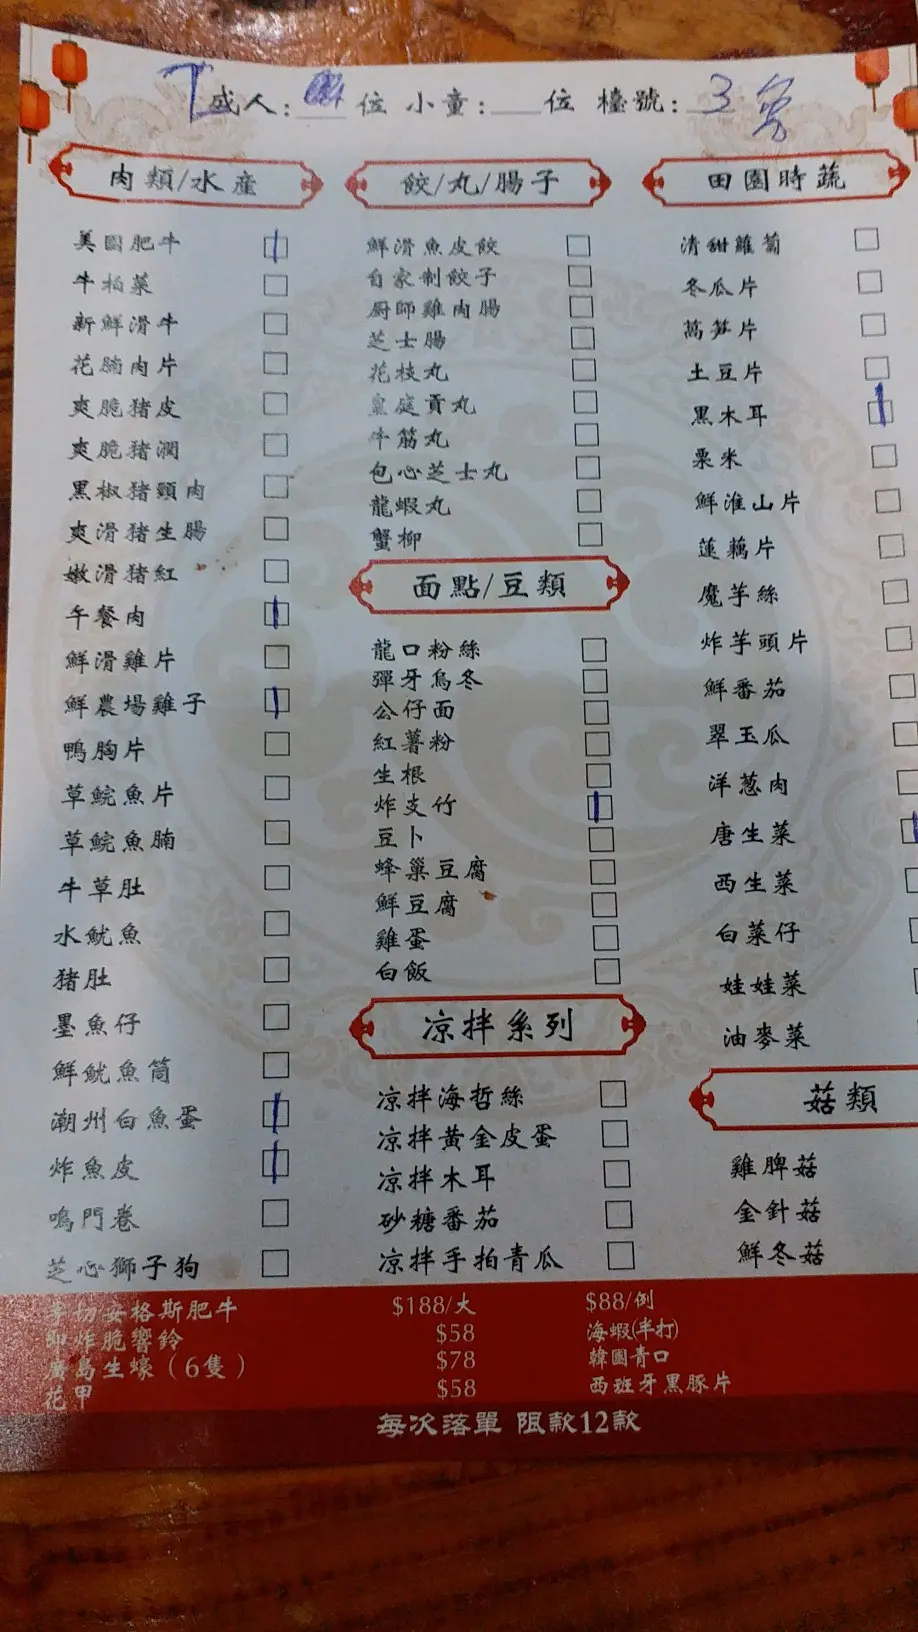 成人： 位 小童： 位 檯號： 3
肉類/水產
美國肥牛
牛柏菜
新鮮滑牛
花腩肉片
爽脆猪皮
爽脆猪潤
黑椒猪頸肉
爽滑猪生腸
嫩滑猪紅
午餐肉
鮮滑雞片
鮮農場雞子
鴨胸片
草鯇魚片
草鯇魚腩
牛草肚
水魷魚
猪肚
墨魚仔
鮮魷魚筒
潮州白魚蛋
炸魚皮
鳴門卷
芝心獅子狗
餃/丸/腸子
鮮滑魚皮餃
自家制餃子
厨師雞肉腸
芝士腸
花枝丸
皇庭貢丸
牛筋丸
包心芝士丸
龍蝦丸
蟹柳
面點/豆類
龍口粉絲
彈牙烏冬
公仔面
紅薯粉
生根
炸支竹
豆卜
蜂巢豆腐
鮮豆腐
雞蛋
白飯
凉拌系列
凉拌海哲絲
凉拌黃金皮蛋
凉拌木耳
砂糖番茄
凉拌手拍青瓜
田園時蔬
清甜蘿蔔
冬瓜片
萵笋片
土豆片
黑木耳
粟米
鮮淮山片
蓮藕片
魔芋絲
炸芋頭片
鮮番茄
翠玉瓜
洋葱肉
唐生菜
西生菜
白菜仔
娃娃菜
油麥菜
菇類
雞脾菇
金針菇
鮮冬菇
手切安格斯肥牛 $188/大 $88/例
即炸脆響鈴 $58 海蝦(半打)
廣島生蠔（6隻） $78 韓國青口
花甲 $58 西班牙黑豚片
每次落單 限款12款